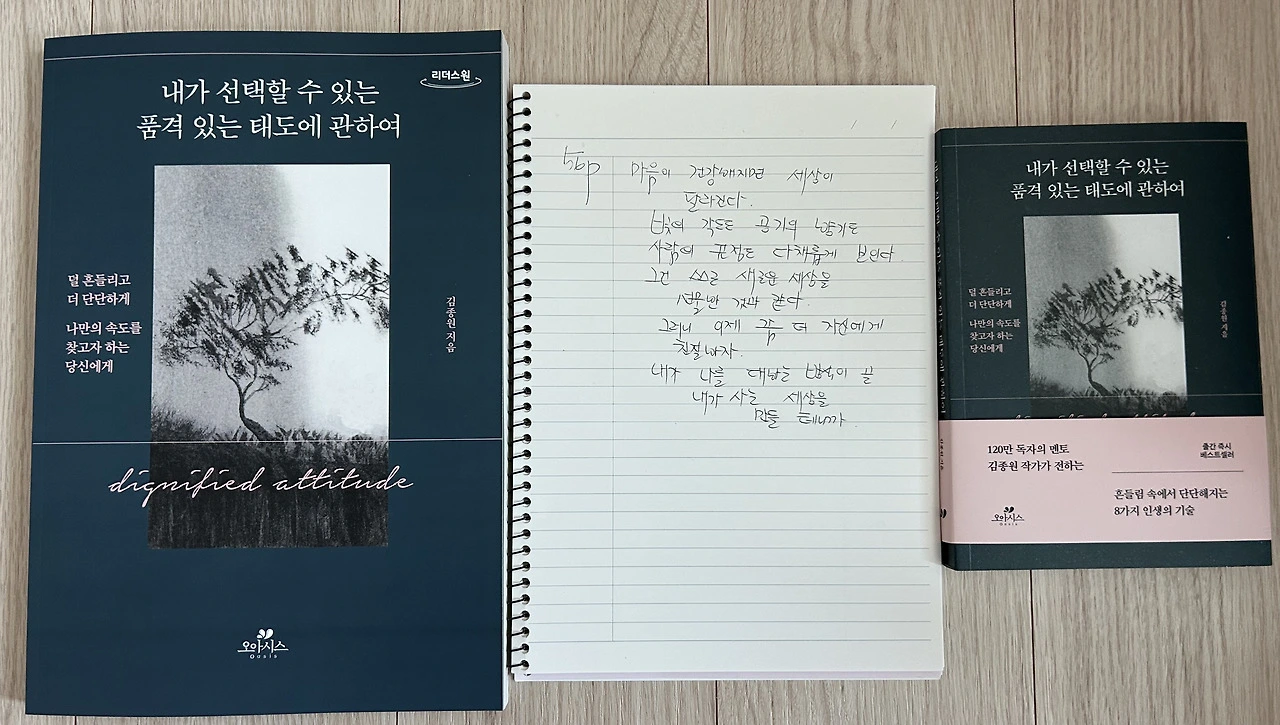 리더스원
내가 선택할 수 있는
품격 있는 태도에 관하여
덜 흔들리고
더 단단하게
나만의 속도를
찾고자 하는
당신에게
김종원 지음
dignified attitude
오아시스
Oasis
56p
마음이 건강해지면 세상이
달라진다.
빛의 각도도 공기의 향기도
사람의 표정도 다채롭게 보인다.
그건 스스로 새로운 세상을
선물한 것과 같다.
그러니 이제 조금 더 자신에게
친절하자.
내가 나를 대하는 방식이 곧
내가 사는 세상을
만들 테니까.
내가 선택할 수 있는
품격 있는 태도에 관하여
덜 흔들리고
더 단단하게
나만의 속도를
찾고자 하는
당신에게
김종원 지음
120만 독자의 멘토
김종원 작가가 전하는
출간 즉시
베스트셀러
흔들림 속에서 단단해지는
8가지 인생의 기술
오아시스
Oasis